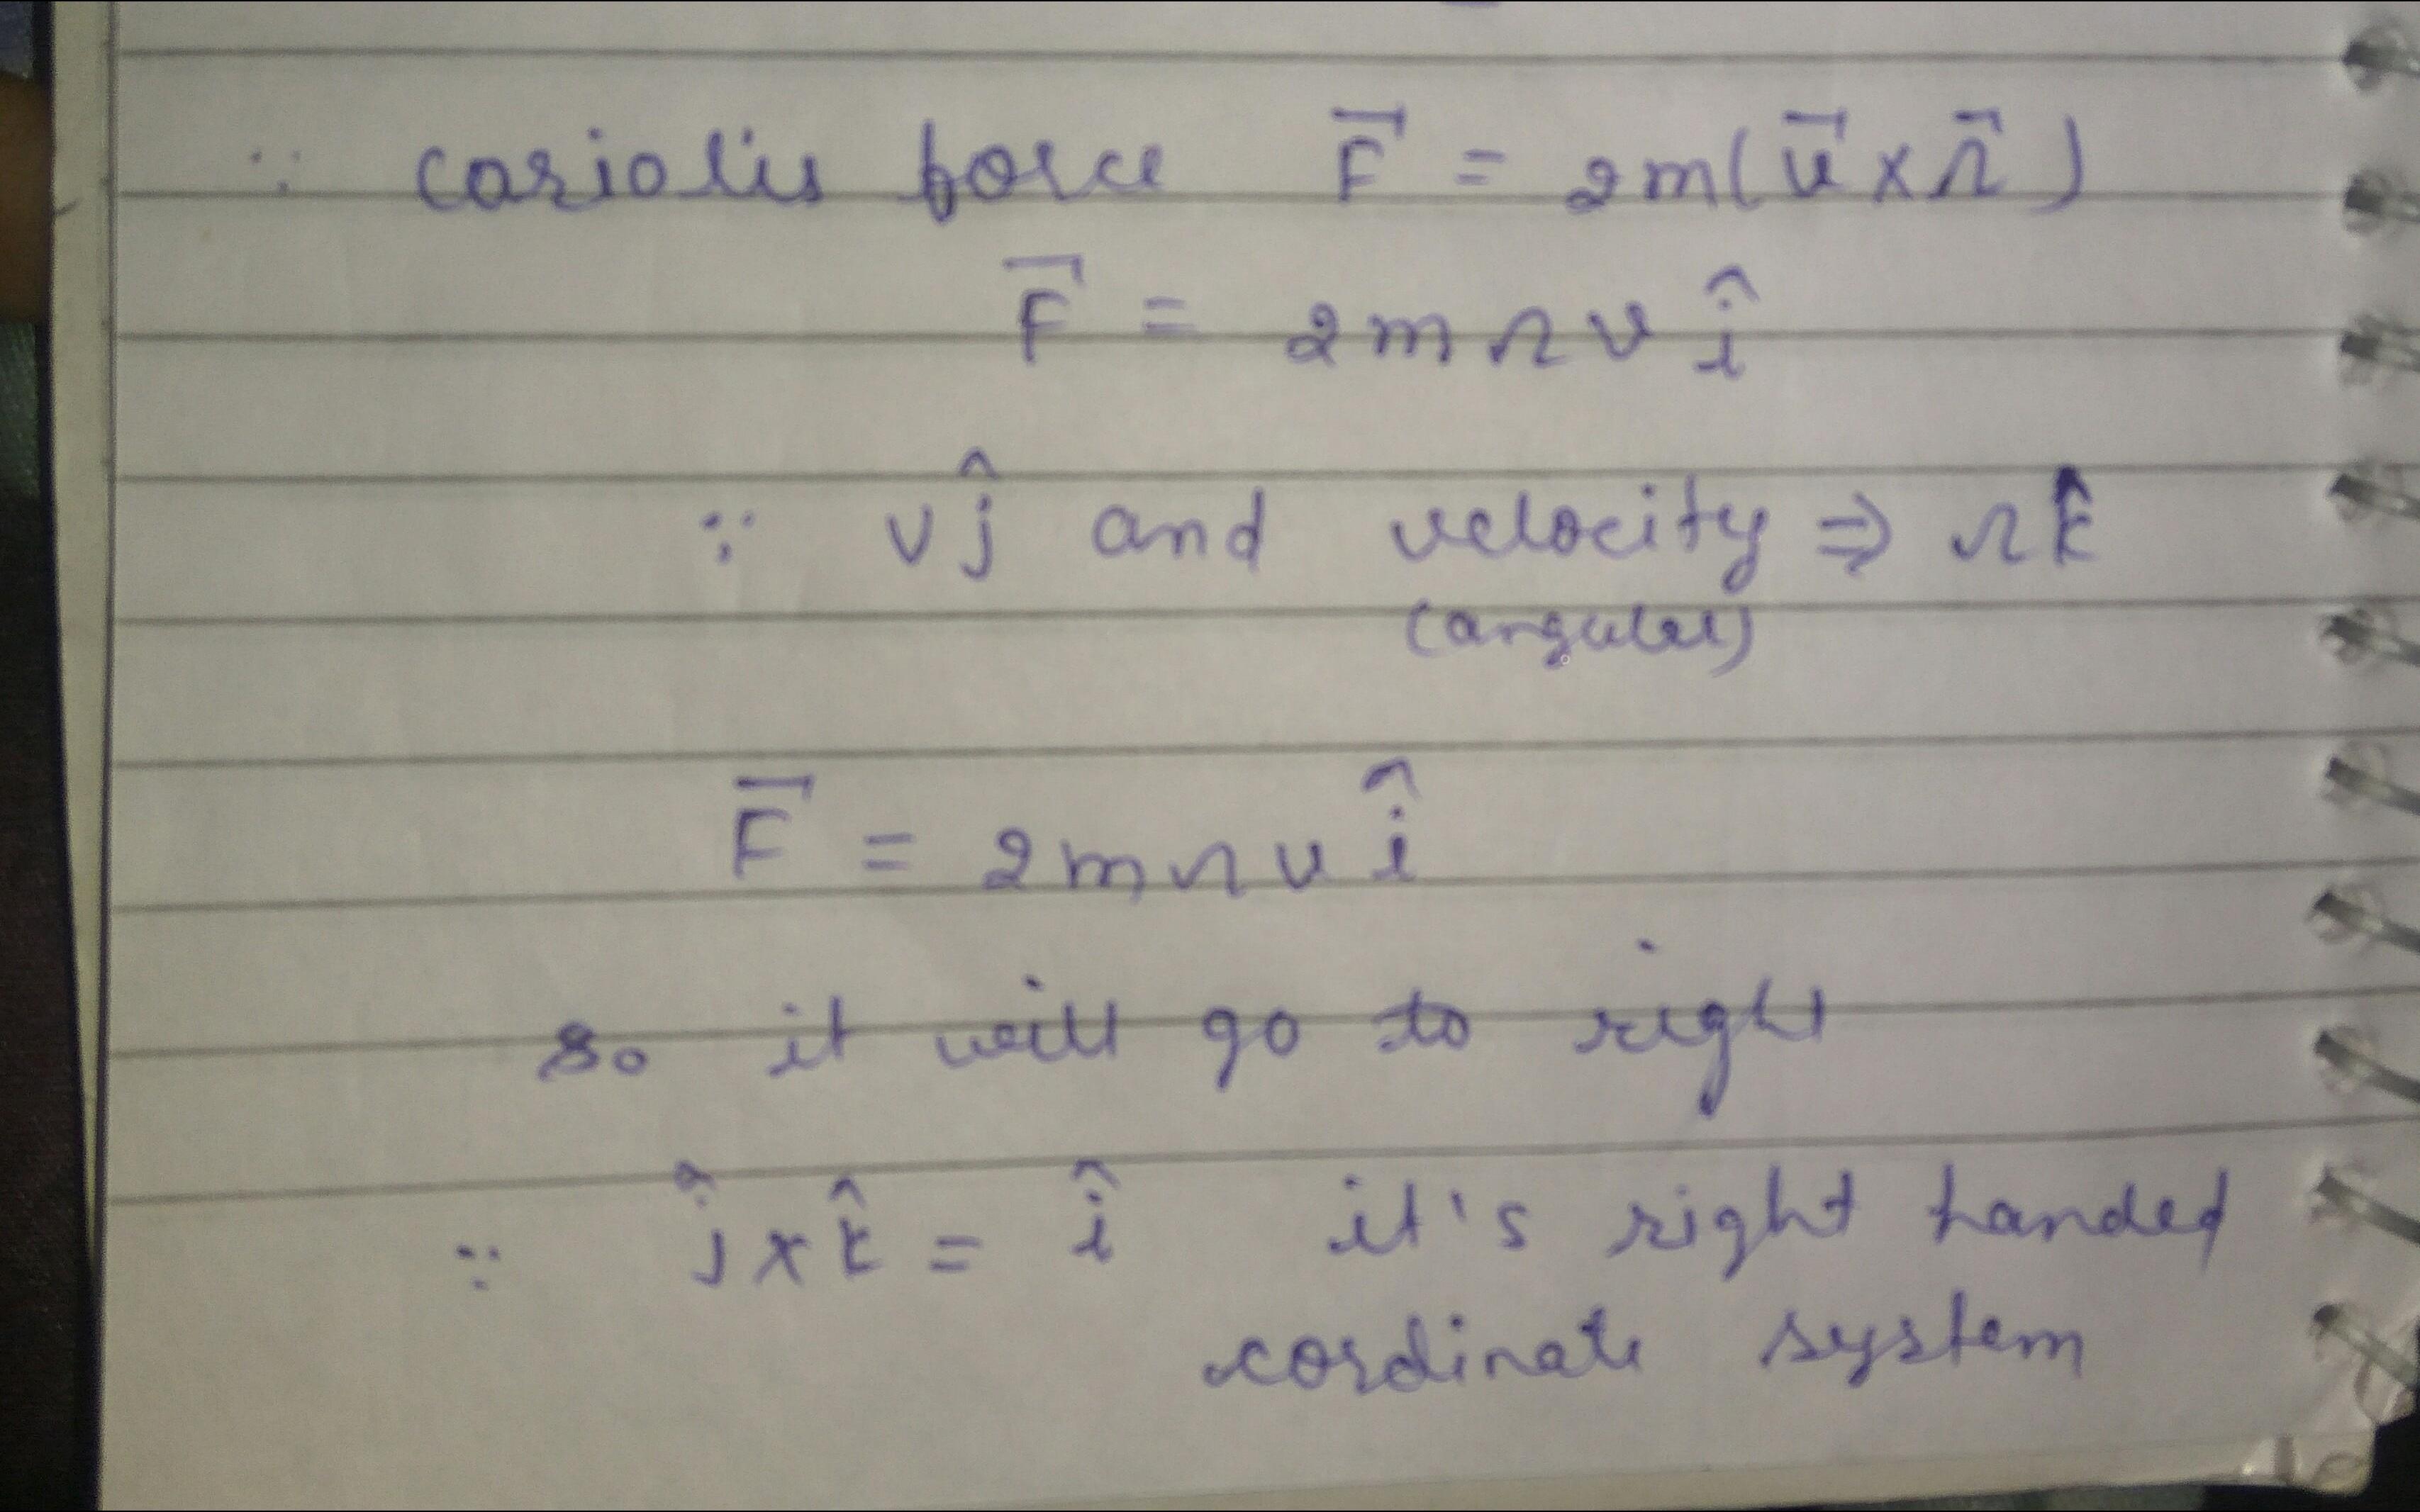 ∵ coriolis force F⃗ = 2m(v⃗ × Ω⃗)
F⃗ = 2mΩv î
∵ vĵ and velocity ⇒ Ωk̂
(angular)
F⃗ = 2mΩv î
so it will go to right
∵ ĵ × k̂ = î it's right handed
cordinate system